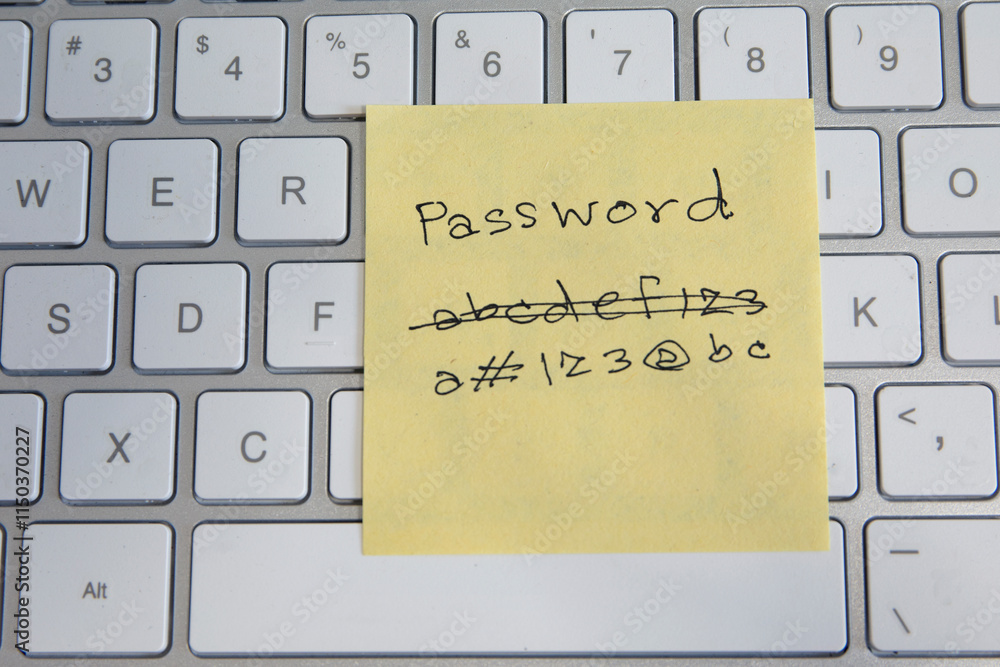 # 3 $ 4 % 5 & 6 ' 7 ( 8 ) 9
W E R I O
S D F K L
X C < ,
Alt — \
Password
abcdef123
a#123@bc
Adobe Stock | #1150370227